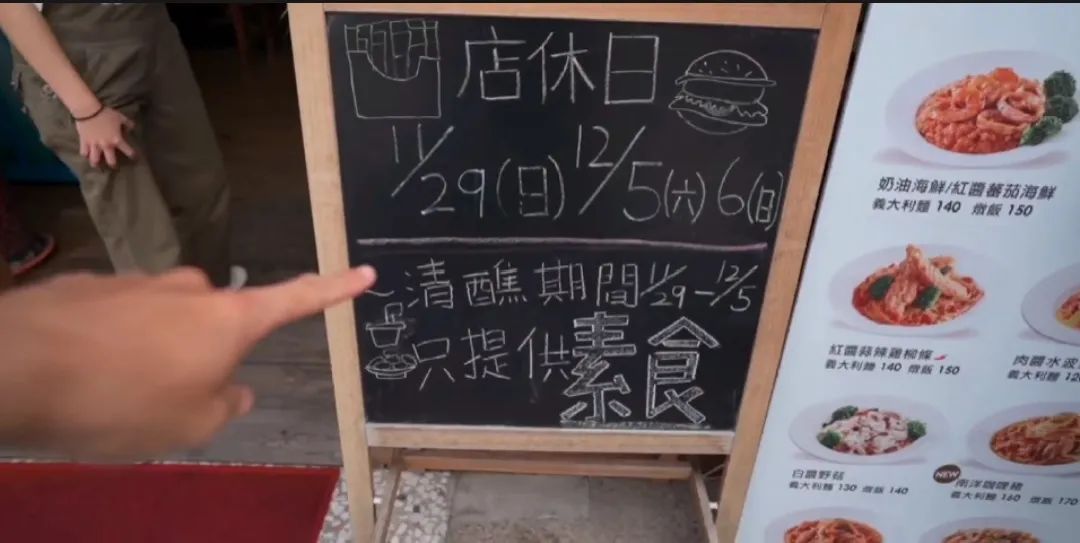 店休日
11/29(日) 12/5(六) 6(日)
~清醮期間 11/29-12/5
只提供素食
奶油海鮮/紅醬蕃茄海鮮
義大利麵 140 燉飯 150
紅醬蒜辣雞柳條
義大利麵 140 燉飯 150
肉醬水波
義大利麵 12
白醬野菇
義大利麵 130 燉飯 140
NEW
南洋咖哩豬
義大利麵 160 燉飯 170